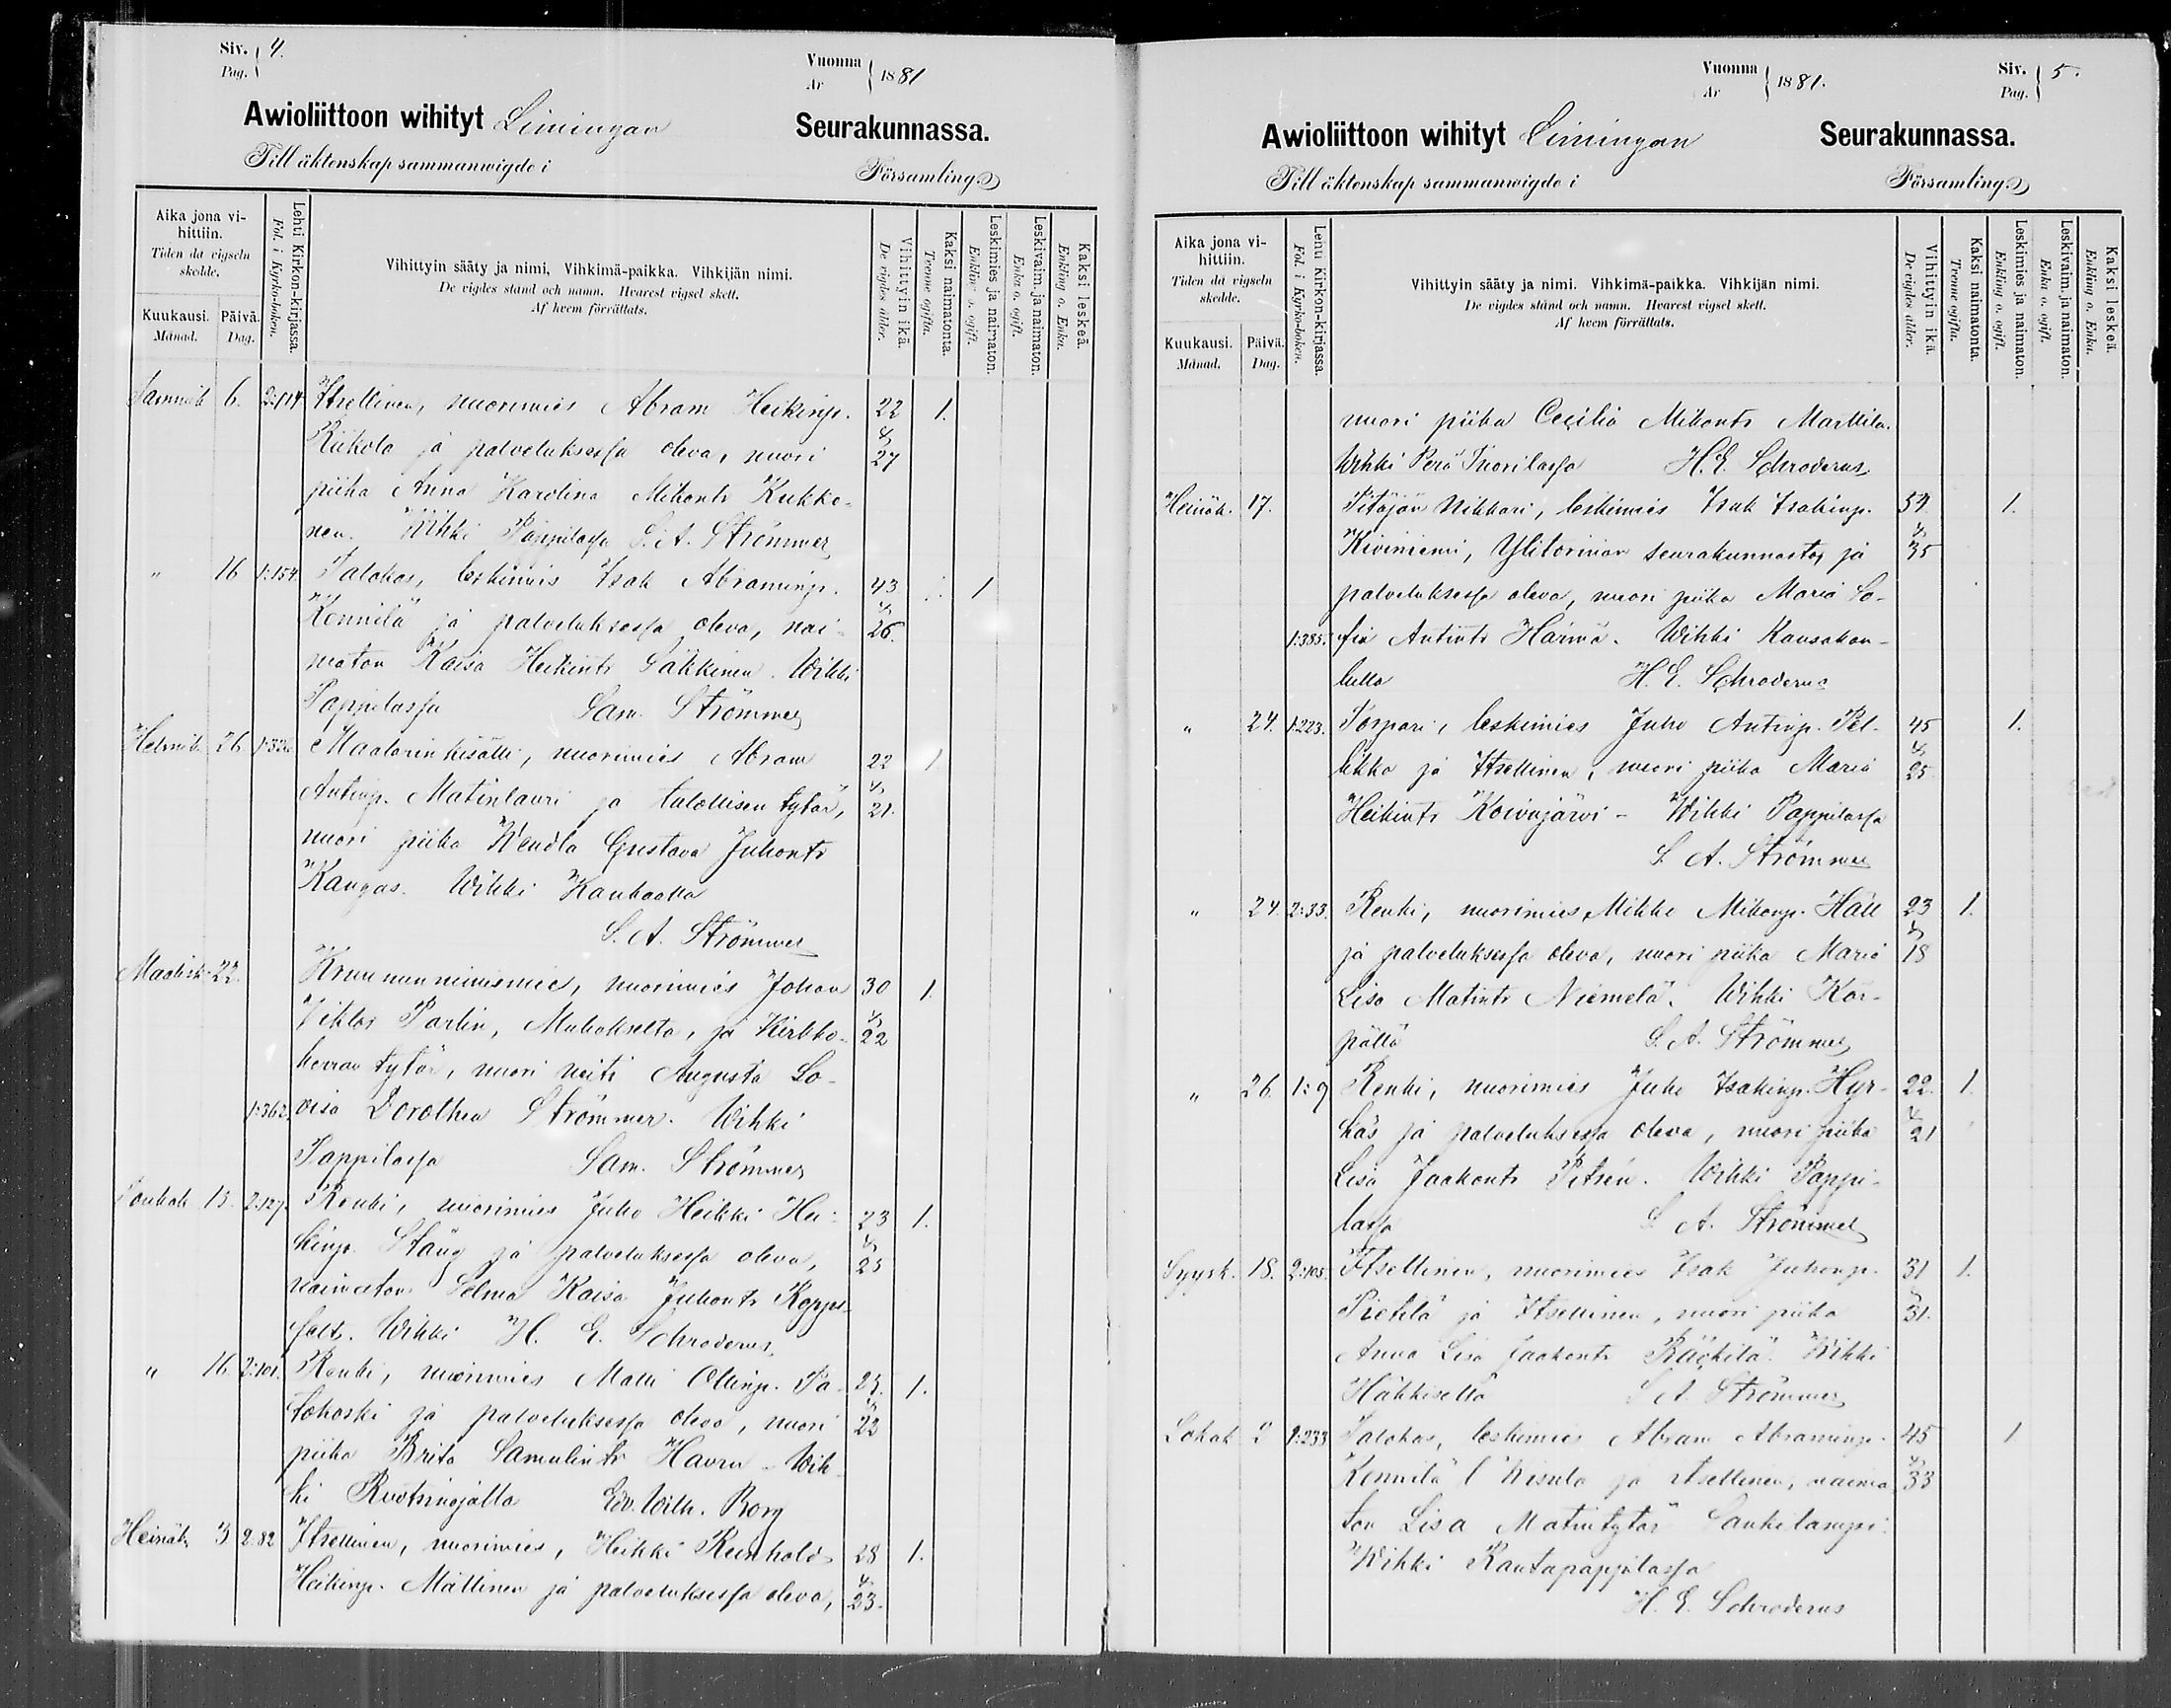 Siv. 4.
Pag.
Vuonna 1881
År
Awioliittoon wihityt Limingan Seurakunnassa.
Till äktenskap sammanwigde i Församling.
Aika jona vihittiin.
Tiden då vigseln skedde.
Kuukausi. Månad.
Päivä. Dag.
Lehti Kirkon-kirjassa. Fol. i Kyrko-boken.
Vihittyin sääty ja nimi. Vihkimä-paikka. Vihkijän nimi.
De vigdes stånd och namn. Hvarest vigsel skett.
Af hvem förrättats.
Vihittyin ikä. De vigdes ålder.
Kaksi naimatonta. Tvenne ogifta.
Leskimies ja naimaton. Enkling o. ogift.
Leskivaim. ja naimaton. Enka o. ogift.
Kaksi leskeä. Enkling o. Enka.
Tammik 6. 2:114 Itsellinen, nuorimies Abram Heikinp. 22 1.
Riikola ja palveluksessa oleva, nuori 27
piika Anna Karolina Mikontr Kukko-
nen. Wihki Pappilassa S. A. Strömmer
" 16 1:154. Talokas, leskimies Isak Abraminp. 43 1
Kennilä ja palveluksessa oleva, nai- 26.
maton Kaisa Heikintr Säkkinen. Wihki
Pappilassa Sam. Strömmer
Helmik. 26 Maalarin kisälli, nuorimies Abram 22 1
Antinp. Matinlauri ja talollisen tytär, 21.
nuori piika Wendla Gustava Juhontr
Kangas. Wihki Kankaalla
S. A. Strömmer
Maalisk. 22. Kruununnimismies, nuorimies Johan 30 1.
Viktor Parlin, Muhokselta, ja Kirkko- 22
herran tytär, nuori neiti Augusta Lo-
1:362. visa Dorothea Strömmer. Wihki
Pappilassa Sam. Strömmer
Toukok 15. 2:127. Renki, nuorimies Juho Heikki Hei- 23 1.
kinp. Stång ja palveluksessa oleva, 25
naimaton Selma Kaisa Juhontr
Wihki H. E. Schroderus
" 16. 2:101. Renki, nuorimies Matti Ollinp. Pa- 25. 1.
tokoski ja palveluksessa oleva, nuori 22
piika Brita Samulintr Hauru. Wih-
ki Ruotsinojalla Edv. Wilh. Borg
Heinäk. 3 2:82 Itsellinen, nuorimies, Heikki Reinhold 28 1.
Heikinp. Mällinen ja palveluksessa oleva, 23.
Vuonna 1881.
År
Siv. 5.
Pag.
Awioliittoon wihityt Limingan Seurakunnassa.
Till äktenskap sammanwigde i Församling.
Aika jona vihittiin.
Tiden då vigseln skedde.
Kuukausi. Månad.
Päivä. Dag.
Lehti Kirkon-kirjassa. Fol. i Kyrko-boken.
Vihittyin sääty ja nimi. Vihkimä-paikka. Vihkijän nimi.
De vigdes stånd och namn. Hvarest vigsel skett.
Af hvem förrättats.
Vihittyin ikä. De vigdes ålder.
Kaksi naimatonta. Tvenne ogifta.
Leskimies ja naimaton. Enkling o. ogift.
Leskivaim. ja naimaton. Enka o. ogift.
Kaksi leskeä. Enkling o. Enka.
nuori piika Cecilia Mikontr Marttila.
Wihki Perä Tuorilassa H. E. Schroderus.
Heinäk. 17. Pitäjän Nikkari, leskimies Isak Isakinp. 54 1.
Kiviniemi, Ylitornion seurakunnasta, ja 35
palveluksessa oleva, nuori piika Maria So-
1:385. fia Antintr Härmä. Wihki Kansakou-
lulla H. E. Schroderus
" 24. 1:223. Torpari, leskimies Juho Antinp. Pel- 45 1.
likka ja Itsellinen, nuori piika Maria 25
Heikintr Koivujärvi - Wihki Pappilassa
S. A. Strömmer
" 24. 2:33. Renki, nuorimies Mikko Mikonp. Häll 23 1.
ja palveluksessa oleva, nuori piika Maria 18
Lisa Matintr Niemelä. Wihki Kar-
pällä S. A. Strömmer
" 26. 1:9 Renki, nuorimies Juho Isakinp. Hyr- 22. 1.
käs ja palveluksessa oleva, nuori piika 21
Lisa Jaakontr Petrén. Wihki Pappi-
lassa S. A. Strömmer
Syysk. 18. 2:105. Itsellinen, nuorimies Isak Juhonp. 31 1.
Piehlä ja Itsellinen, nuori piika 31.
Anna Lisa Jaakontr Räckilä. Wihki
Häkkisellä S. A. Strömmer
Lokak 2 1:233 Talokas, leskimies Abram Abraminp. 45 1
Kennilä l. Nisula ja itsellinen, naima 33
ton Lisa Matintytär Sankilampi.
Wihki Rantapappilassa
H. E. Schroderus